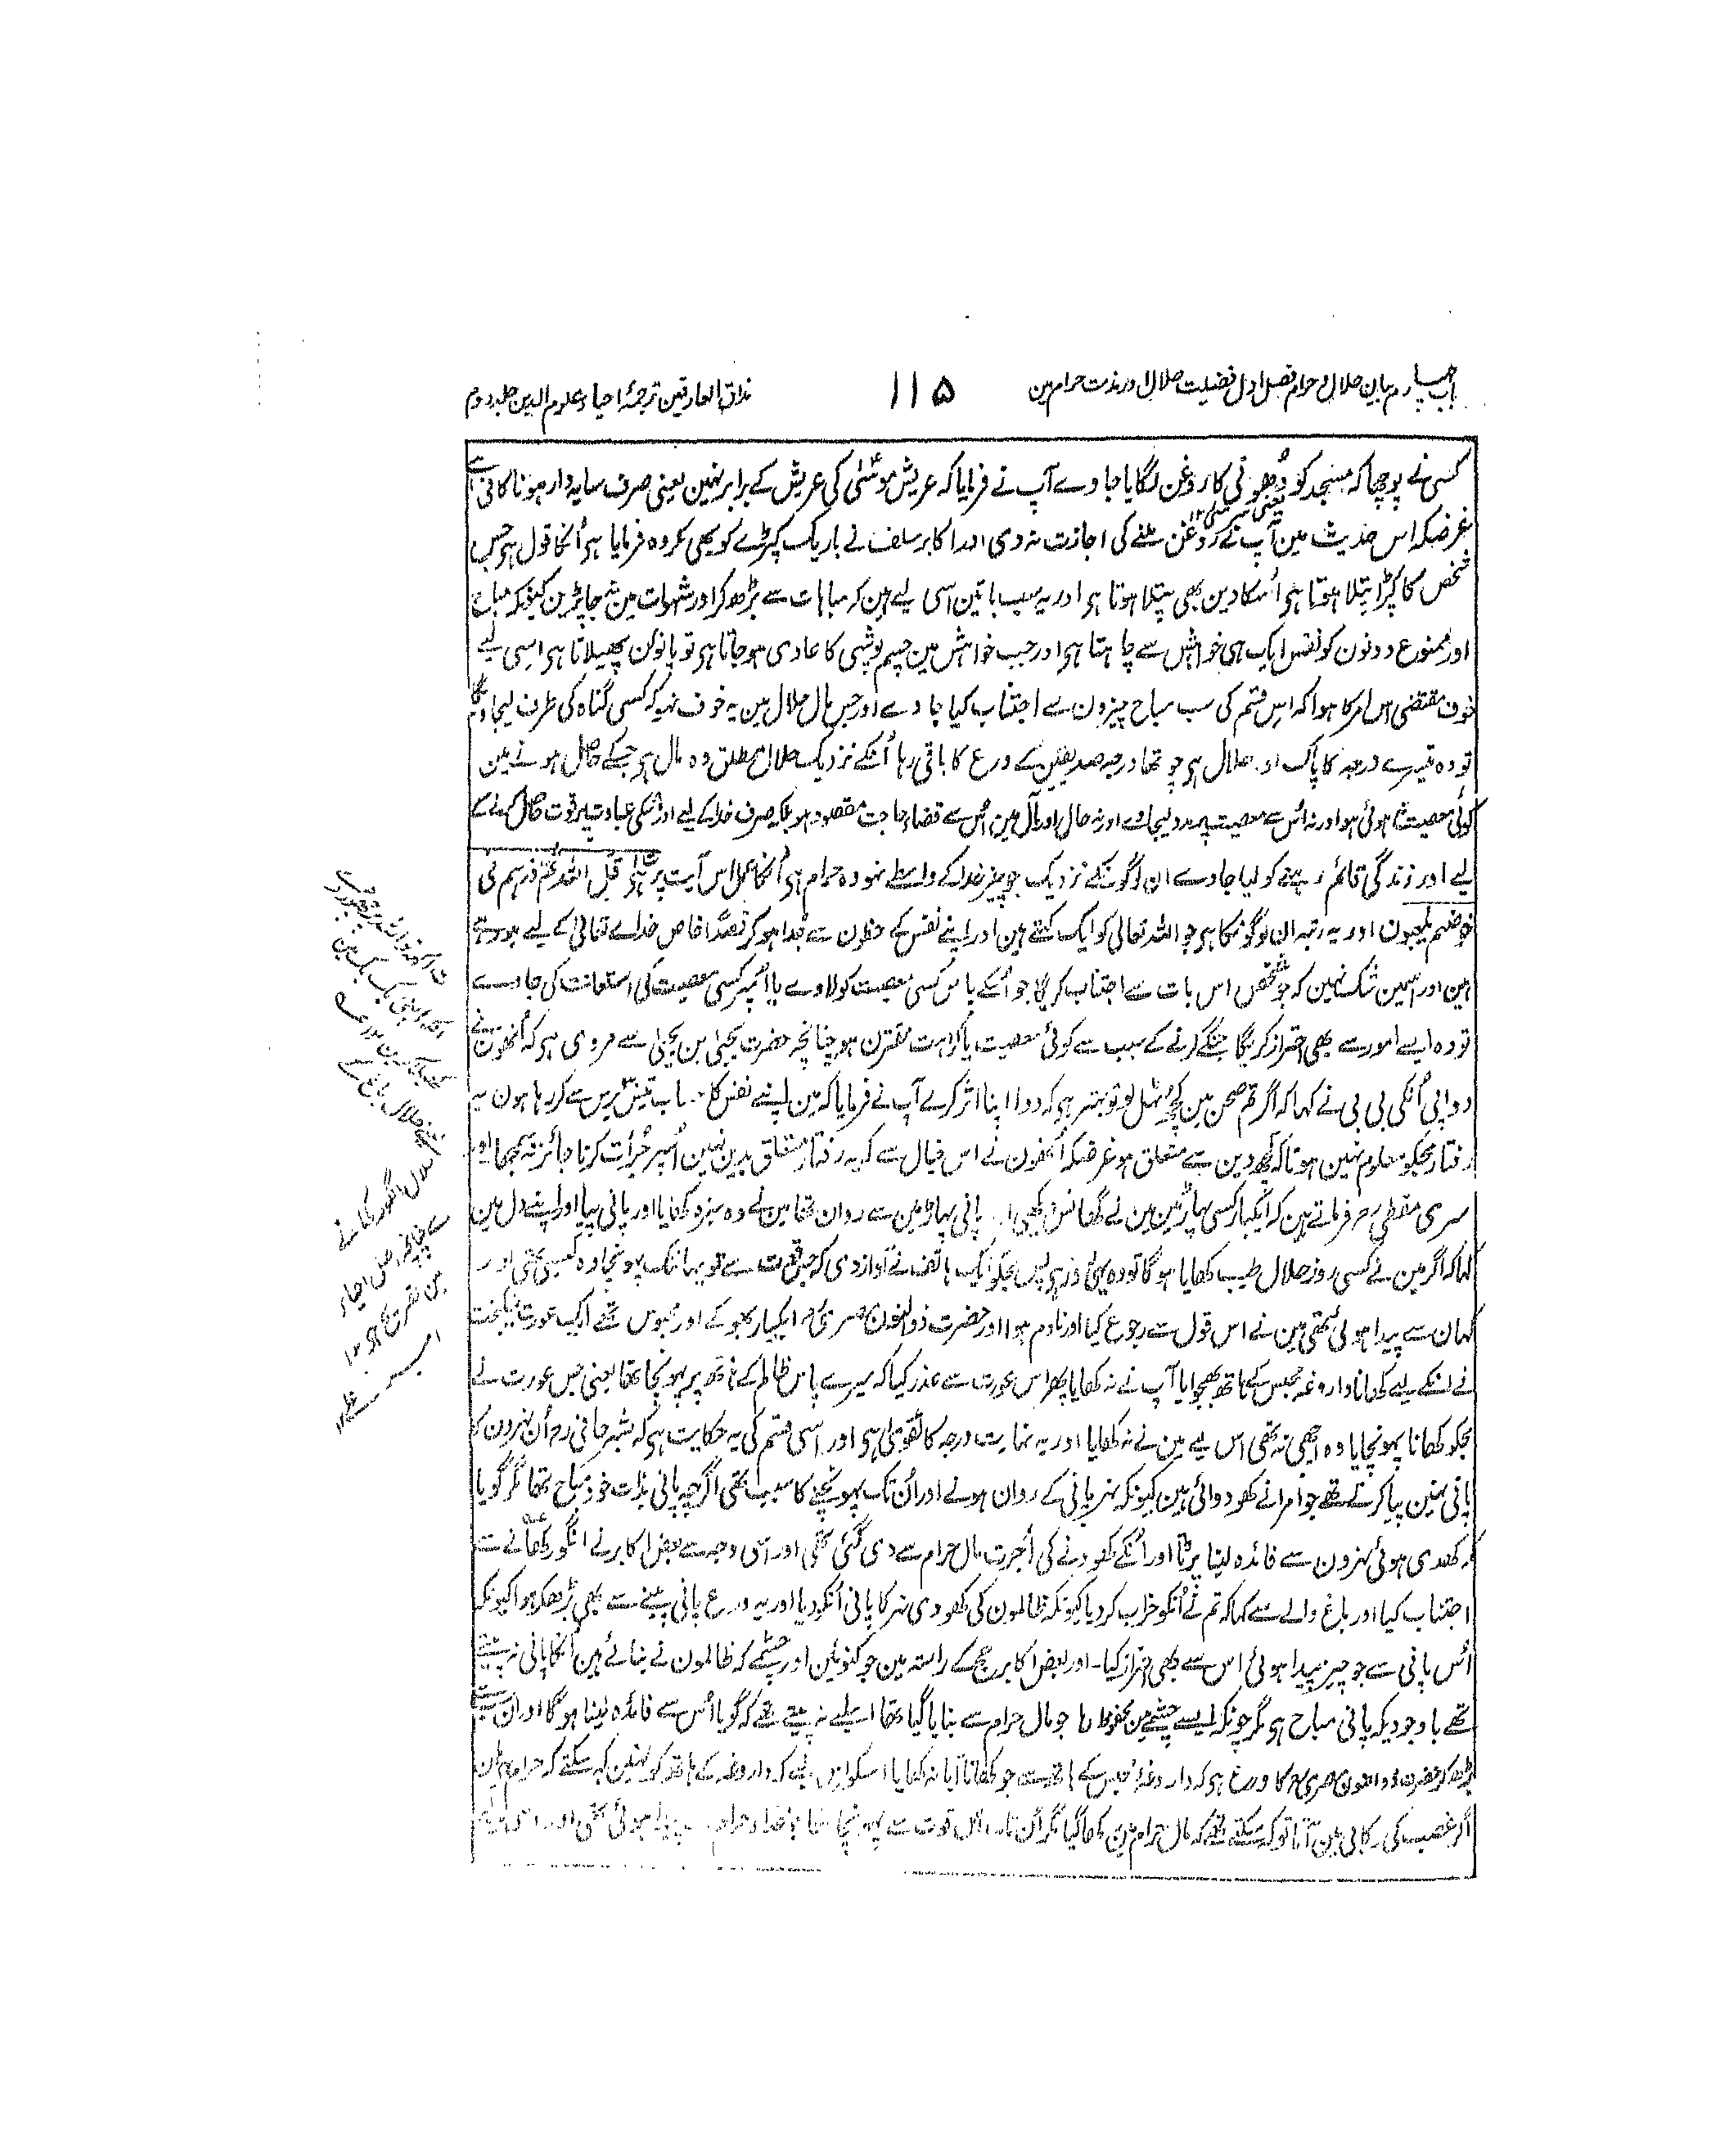 باب چہارم بیان حلال و حرام فصل اول فضیلت حلال اور مذمت حرام مین
۱۱۵
مذاق العارفین ترجمۂ احیاء علوم الدین جلد دوم
کسی نے پوچھا کہ مسجد کو دھونی کا روغن لگایا جاوے آپ نے فرمایا کہ عریش موسٰی کی عریش کے برابر نہین یعنی صرف سایہ دار ہونا کافی ہے
غرضکہ اس حدیث مین آپ نے روغن ملنے کی اجازت نہ دی اور اکابر سلف نے باریک کپڑے کو بھی مکروہ فرمایا ہی اُنکا قول ہی جس
شخص کا کپڑا پتلا ہوتا ہی اُسکا دین بھی پتلا ہوتا ہی اور یہ سب باتین اسی لیے ہین کہ مباحات سے بڑھ کر اور شہوات مین نہ جا پڑین کیونکہ مباح
اور ممنوع دونون کو نفس ایک ہی خواہش سے چاہتا ہی اور جب خواہش مین چشم پوشی کا عادی ہو جاتا ہی تو پانوٴن پھیلاتا ہی اسی لیے
خوف مقتضی اس امر کا ہوا کہ اس قسم کی سب مباح چیزون سے اجتناب کیا جاوے اور جس مال حلال مین یہ خوف نہو کہ کسی گناہ کی طرف لیجاویگا
تو وہ تیسرے درجہ کا پاک اور حلال ہی چوتھا درجہ صدیقین کے ورع کا باقی رہا اُنکے نزدیک حلال مطلق وہ مال ہی جسکے حاصل ہونے مین
کوئی معصیت نہ ہوئی ہو اور نہ اُس سے معصیت پر مدد لیجاوے اور نہ حال اور مآل مین اُس سے قضاء حاجت مقصود ہو بلکہ صرف خدا کے لیے اور اُسکی عبادت پر قوت حاصل کرنے کے
لیے اور زندگی قائم رہنے کو لیا جاوے ان لوگونکے نزدیک جو چیز خدا کے واسطے نہو وہ حرام ہی اُنکا عمل اس آیت پر ہی قل اللہ ثم ذرہم فی
خوضہم یلعبون اور یہ رتبہ ان لوگونکا ہی جو اللہ تعالی کو ایک کہتے ہین اور اپنے نفس کے حظون سے جُدا ہو کر قصداً خاص خداے تعالی کے لیے ہو رہتے
ہین اور اسمین شک نہین کہ جو شخص اس بات سے اجتناب کریگا جو اُسکے پاس کسی معصیت کو لاوے یا اُسپر کسی معصیت کی استعانت کی جاوے
تو وہ ایسے امور سے بھی احتراز کریگا جنکے کرنے کے سبب سے کوئی معصیت یا کراہت مقترن ہو چنانچہ حضرت یحیی بن یحیی سے مروی ہی کہ اُنھون نے
دوا پی اُنکی بی بی نے کہا کہ اگر تم صحن مین کچھ ٹہل لو تو بہتر ہی کہ دوا اپنا اثر کرے آپ نے فرمایا کہ مین اپنے نفس کا حساب تیس برس سے کر رہا ہون یہ
رفتار مجکو معلوم نہین ہوتا کہ کچھ دین سے متعلق ہو غرضکہ اُنھون نے اس خیال سے کہ یہ رفتار متعلق بدین نہین اُسپر جُرأت کرنا جائز نہ سمجھا اور
سری سقطی رح فرماتے ہین کہ ایکبار کسی پہاڑ مین مین نے گھانس دیکھی اور پانی پہاڑ مین سے روان تھا مین نے وہ سبزہ کھایا اور پانی پیا اور اپنے دل مین
کہا کہ اگر مین نے کسی روز حلال طیب کھایا ہوگا تو وہ یہی روز ہی پس مجکو ایک ہاتف نے آواز دی کہ جس قوت سے تو یہانتک پہونچا وہ کیسی تھی اور
کہان سے پیدا ہوئی تھی مین نے اس قول سے رجوع کیا اور نادم ہوا اور حضرت ذوالنون مصری رح ایکبار بھوکے اور محبوس تھے ایک عورت نیکبخت
نے اُنکے لیے کھانا داروغہ محبس کے ہاتھ بھجوایا آپ نے نہ کھایا پھر اس عورت سے عذر کیا کہ میرے پاس ظالم کے ہاتھ پر پہونچا تھا یعنی جس عورت نے
مجکو کھانا پہونچایا وہ اچھی نہ تھی اس لیے مین نے نہ کھایا اور یہ نہایت درجہ کا تقوی ہی اور اسی قسم کی یہ حکایت ہی کہ بشر حافی رح اُن نہرون کا
پانی نہین پیا کرتے تھے جو امرا نے کھدوائی ہین کیونکہ نہر پانی کے روان ہونے اور اُن تک پہونچنے کا سبب تھی اگرچہ پانی بذات خود مباح تھا مگر گویا
کہ کھدی ہوئی نہرون سے فائدہ لینا پڑتا اور اُنکے کھودنے کی اُجرت مال حرام سے دی گئی تھی اور اسی وجہ سے بعض اکابر نے انگور کھانے سے
اجتناب کیا اور باغ والے سے کہا کہ تم نے اُنکو خراب کر دیا کیونکہ ظالمون کی کھودی نہر کا پانی اُنکو دیا اور یہ ورع پانی پینے سے بھی بڑھکر ہوا کیونکہ
اُس پانی سے جو چیز پیدا ہوئی اس سے بھی احتراز کیا۔ اور بعض اکابر حج کے راستہ مین جو کنوئین اور چشمے کہ ظالمون نے بنائے ہین اُنکا پانی نہ پیتے
تھے باوجودیکہ پانی مباح ہی مگر چونکہ ایسے چشمے مین محفوظ رہا جو مال حرام سے بنایا گیا تھا اسلیے نہ پیتے تھے کہ گویا اُس سے فائدہ لینا ہوگا اور ان سب سے
بڑھ کر حضرت ذوالنون مصری رح کا ورع ہی کہ داروغہ محبس کے ہاتھ سے جو کھانا آیا نہ کھایا اسکو اس لیے کہ داروغہ کے ہاتھ کو نہین کہہ سکتے کہ حرام ہی ہان
اگر غصب کی رکابی مین آتا تو کہہ سکتے تھے کہ مال حرام مین رکھا گیا مگر اُن تک اس قوت سے پہونچا تھا جو غذاے حرام سے پیدا ہوئی تھی اور